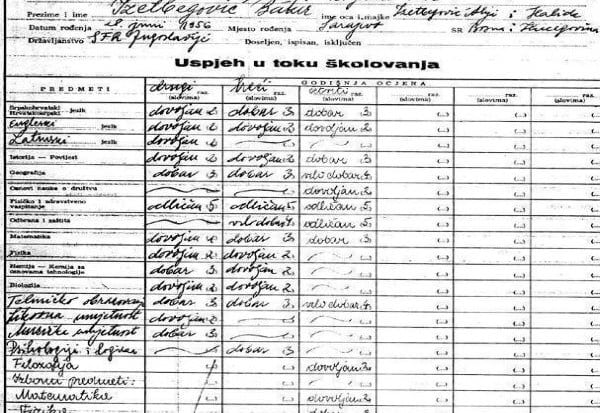 Prezime i ime Izetbegović Bakir ime oca i majke Izetbegović Alij i Halide
Datum rođenja 28. juni 1956 Mjesto rođenja Sarajevo SR Bosna i Hercegovina
Državljanstvo SFR Jugoslavije Doseljen, ispisan, isključen
Uspjeh u toku školovanja
PREDMETI GODIŠNJA OCJENA
drugi raz. treći raz. četvrti raz. raz. raz. raz.
(slovima) (slovima) (slovima) (slovima) (slovima)
Srpskohrvatski
Hrvatskosrpski jezik dovoljan 2 dobar 3 dobar 3
Engleski jezik dovoljan 2 dovoljan 2 dovoljan 2
Latinski jezik dovoljan 2
Istorija — Povijest dovoljan 2 dovoljan 2 dobar 3
Geografija dobar 3 dobar 3 vrlo dobar 4
Osnovi nauke o društvu dovoljan 2
Fizičko i zdravstveno
vaspitanje odličan 5 odličan 5 odličan 5
Odbrana i zaštita vrlo dobar 4 odličan 5
Matematika dovoljan 2 dobar 3 dobar 3
Fizika dovoljan 2 dovoljan 2
Hemija — Kemija sa
osnovama tehnologije dobar 3 dovoljan 2
Biologija dovoljan 2 dovoljan 2
Tehničko obrazovanje dobar 3 dobar 3 vrlo dobar 4
Likovna umjetnost dovoljan 2
Muzička umjetnost dobar 3
Psihologija i logika dobar 3
Filozofija dovoljan 2
Izborni predmeti:
Matematika dovoljan 2
Fizika